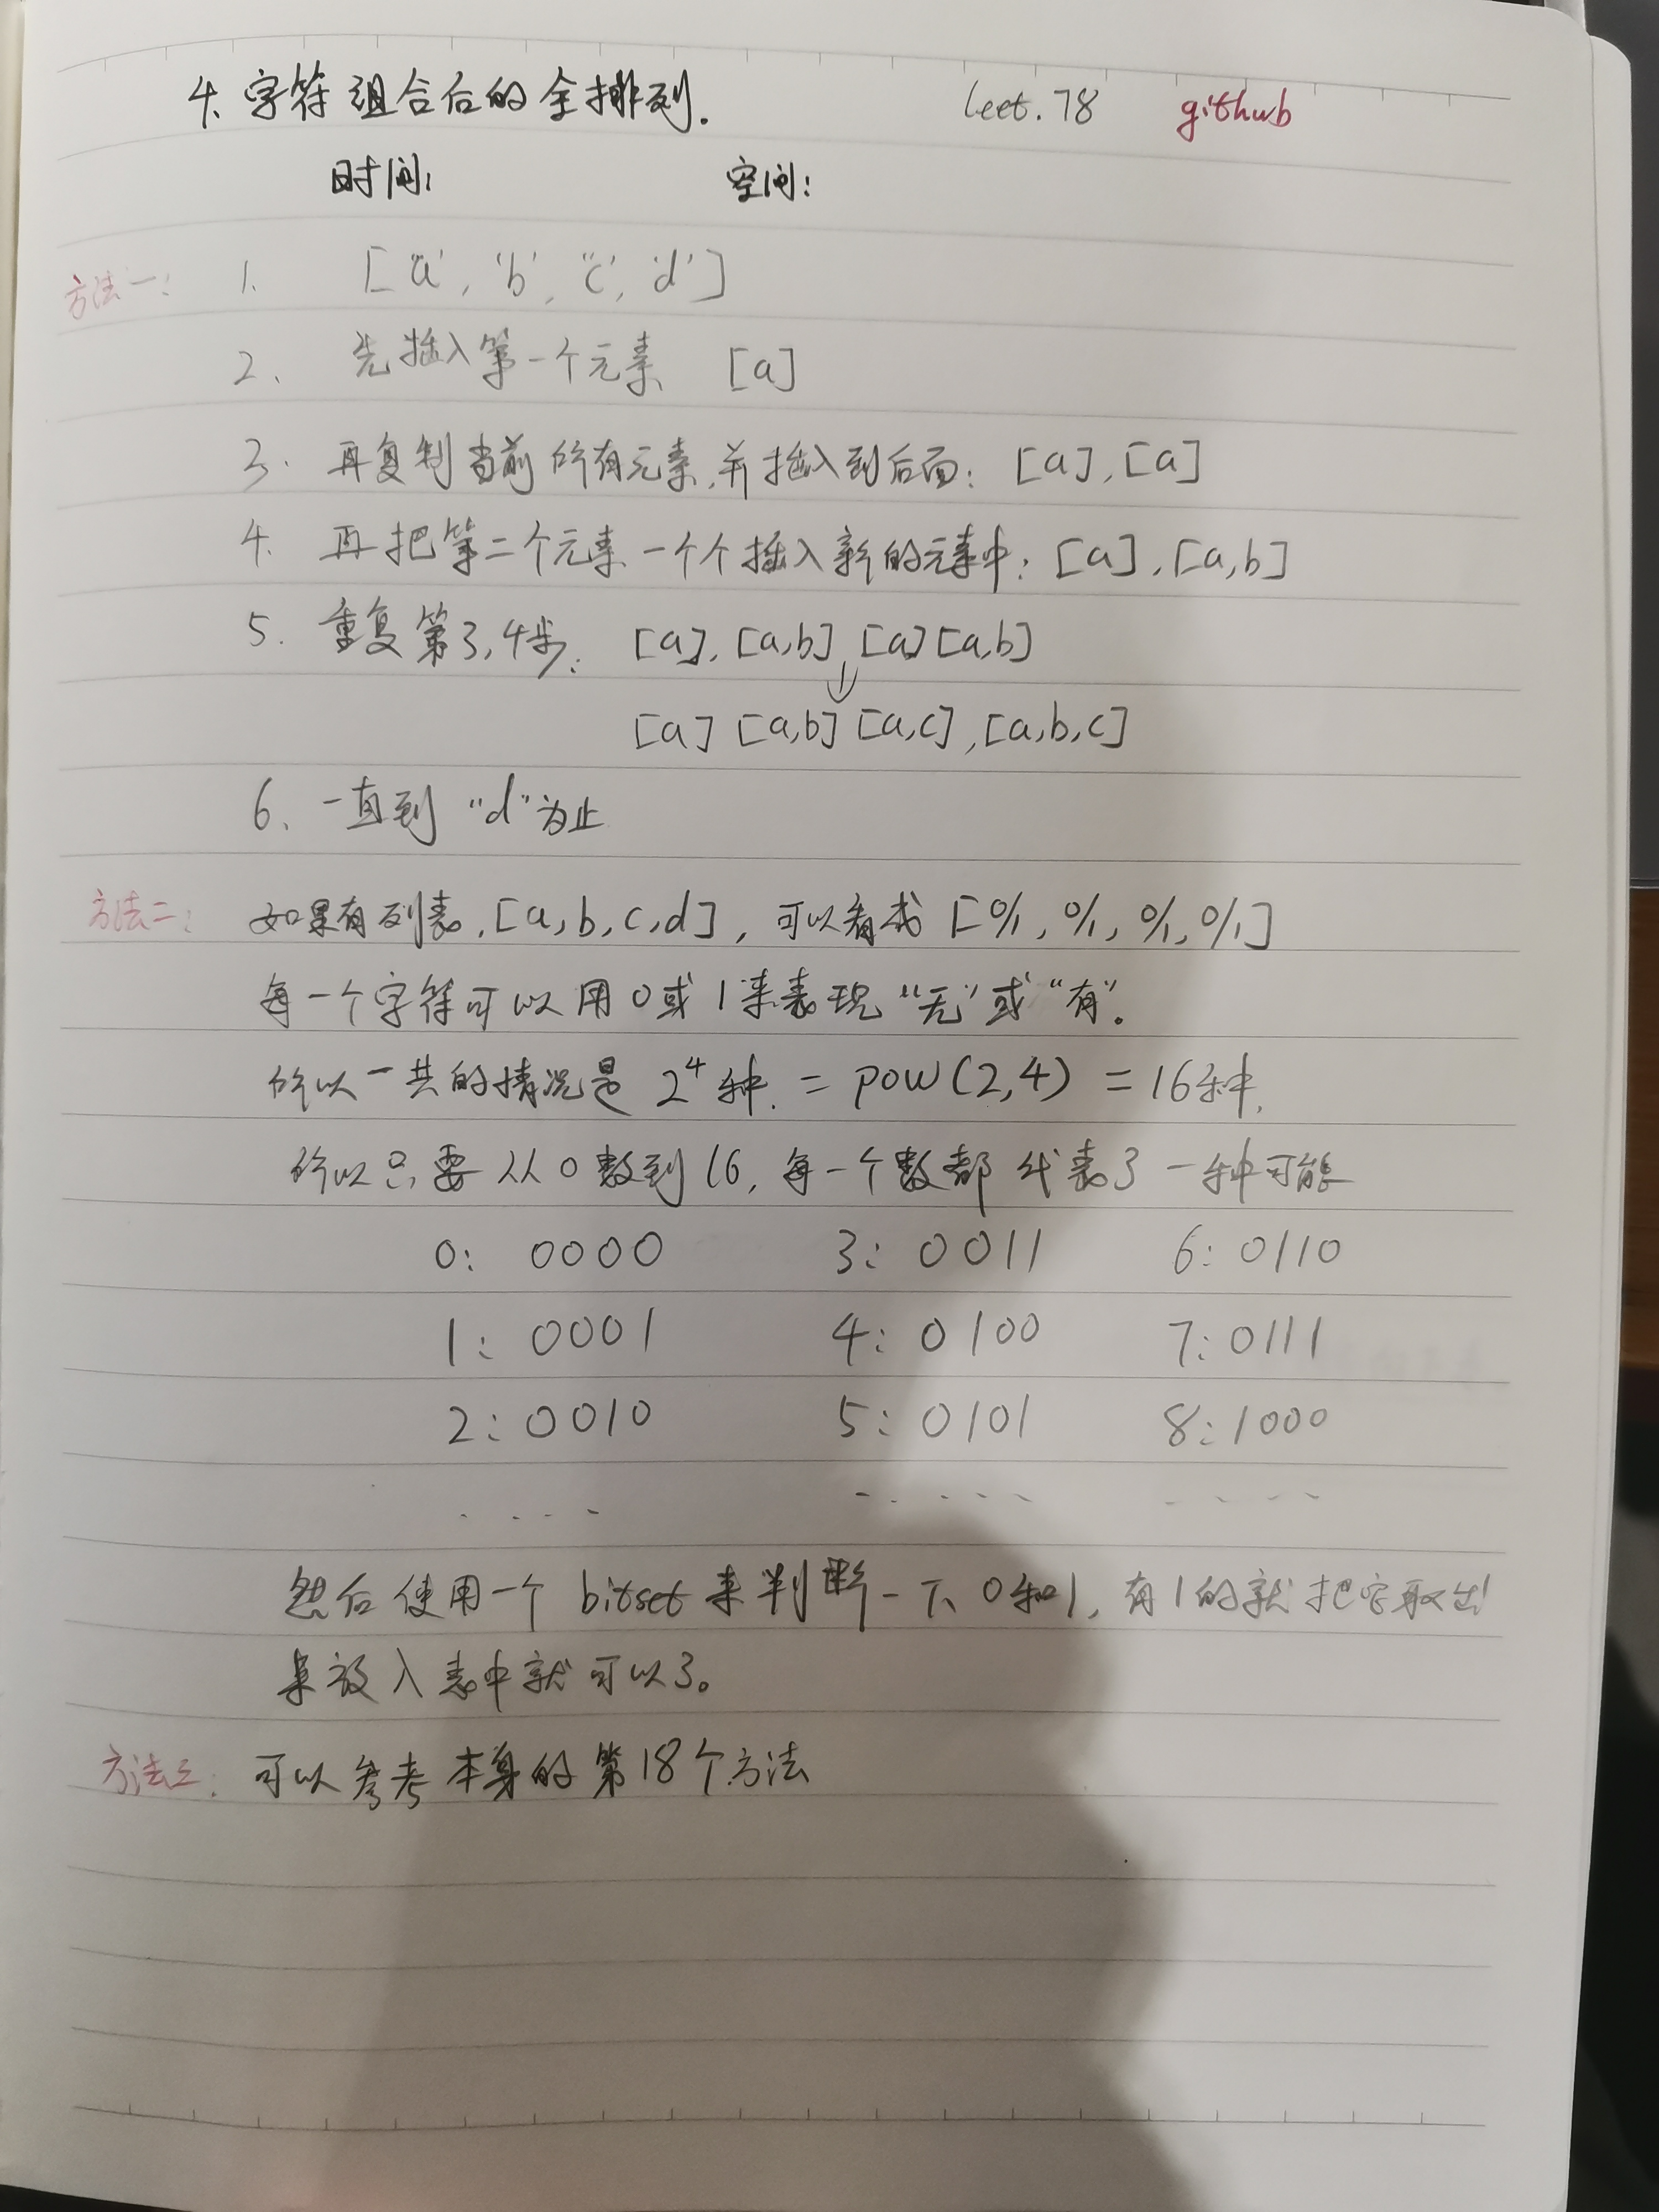 4、字符组合后的全排列. leet.78 github
时间: 空间:
方法一: 1. ["a", 'b', "c", 'd']
2、 先插入第一个元素 [a]
3. 再复制当前所有元素,并插入到后面: [a],[a]
4. 再把第二个元素一个个插入新的元素中: [a],[a,b]
5. 重复第3,4步: [a],[a,b],[a][a,b]
↓
[a] [a,b] [a,c],[a,b,c]
6、一直到 "d"为止
方法二: 如果有列表,[a,b,c,d],可以看成 [0/1, 0/1, 0/1, 0/1]
每一个字符可以用0或1来表现"无"或"有".
所以一共的情况是 2⁴种. = pow(2,4) = 16种.
所以只要从0数到16,每一个数都代表了一种可能
0: 0000 3: 0011 6: 0110
1: 0001 4: 0100 7: 0111
2: 0010 5: 0101 8: 1000
.... ..... ....
然后使用一个 bitset 来判断一下0和1,有1的就把它取出
来放入表中就可以了。
方法三: 可以参考本身的第18个方法